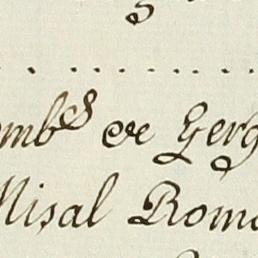 ombs de Gerg
Misal Roma